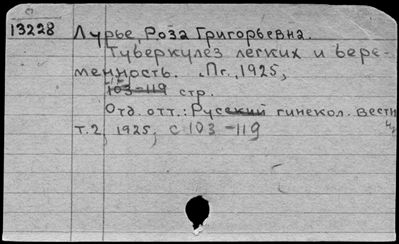 13228 Лурье, Роза Григорьевна.
Туберкулез легких и бере-
менность. Пг., 1925,
103-119 стр.
Отд. отт.: Русский гинекол. вестн
т. 2, 1925, с 103-119